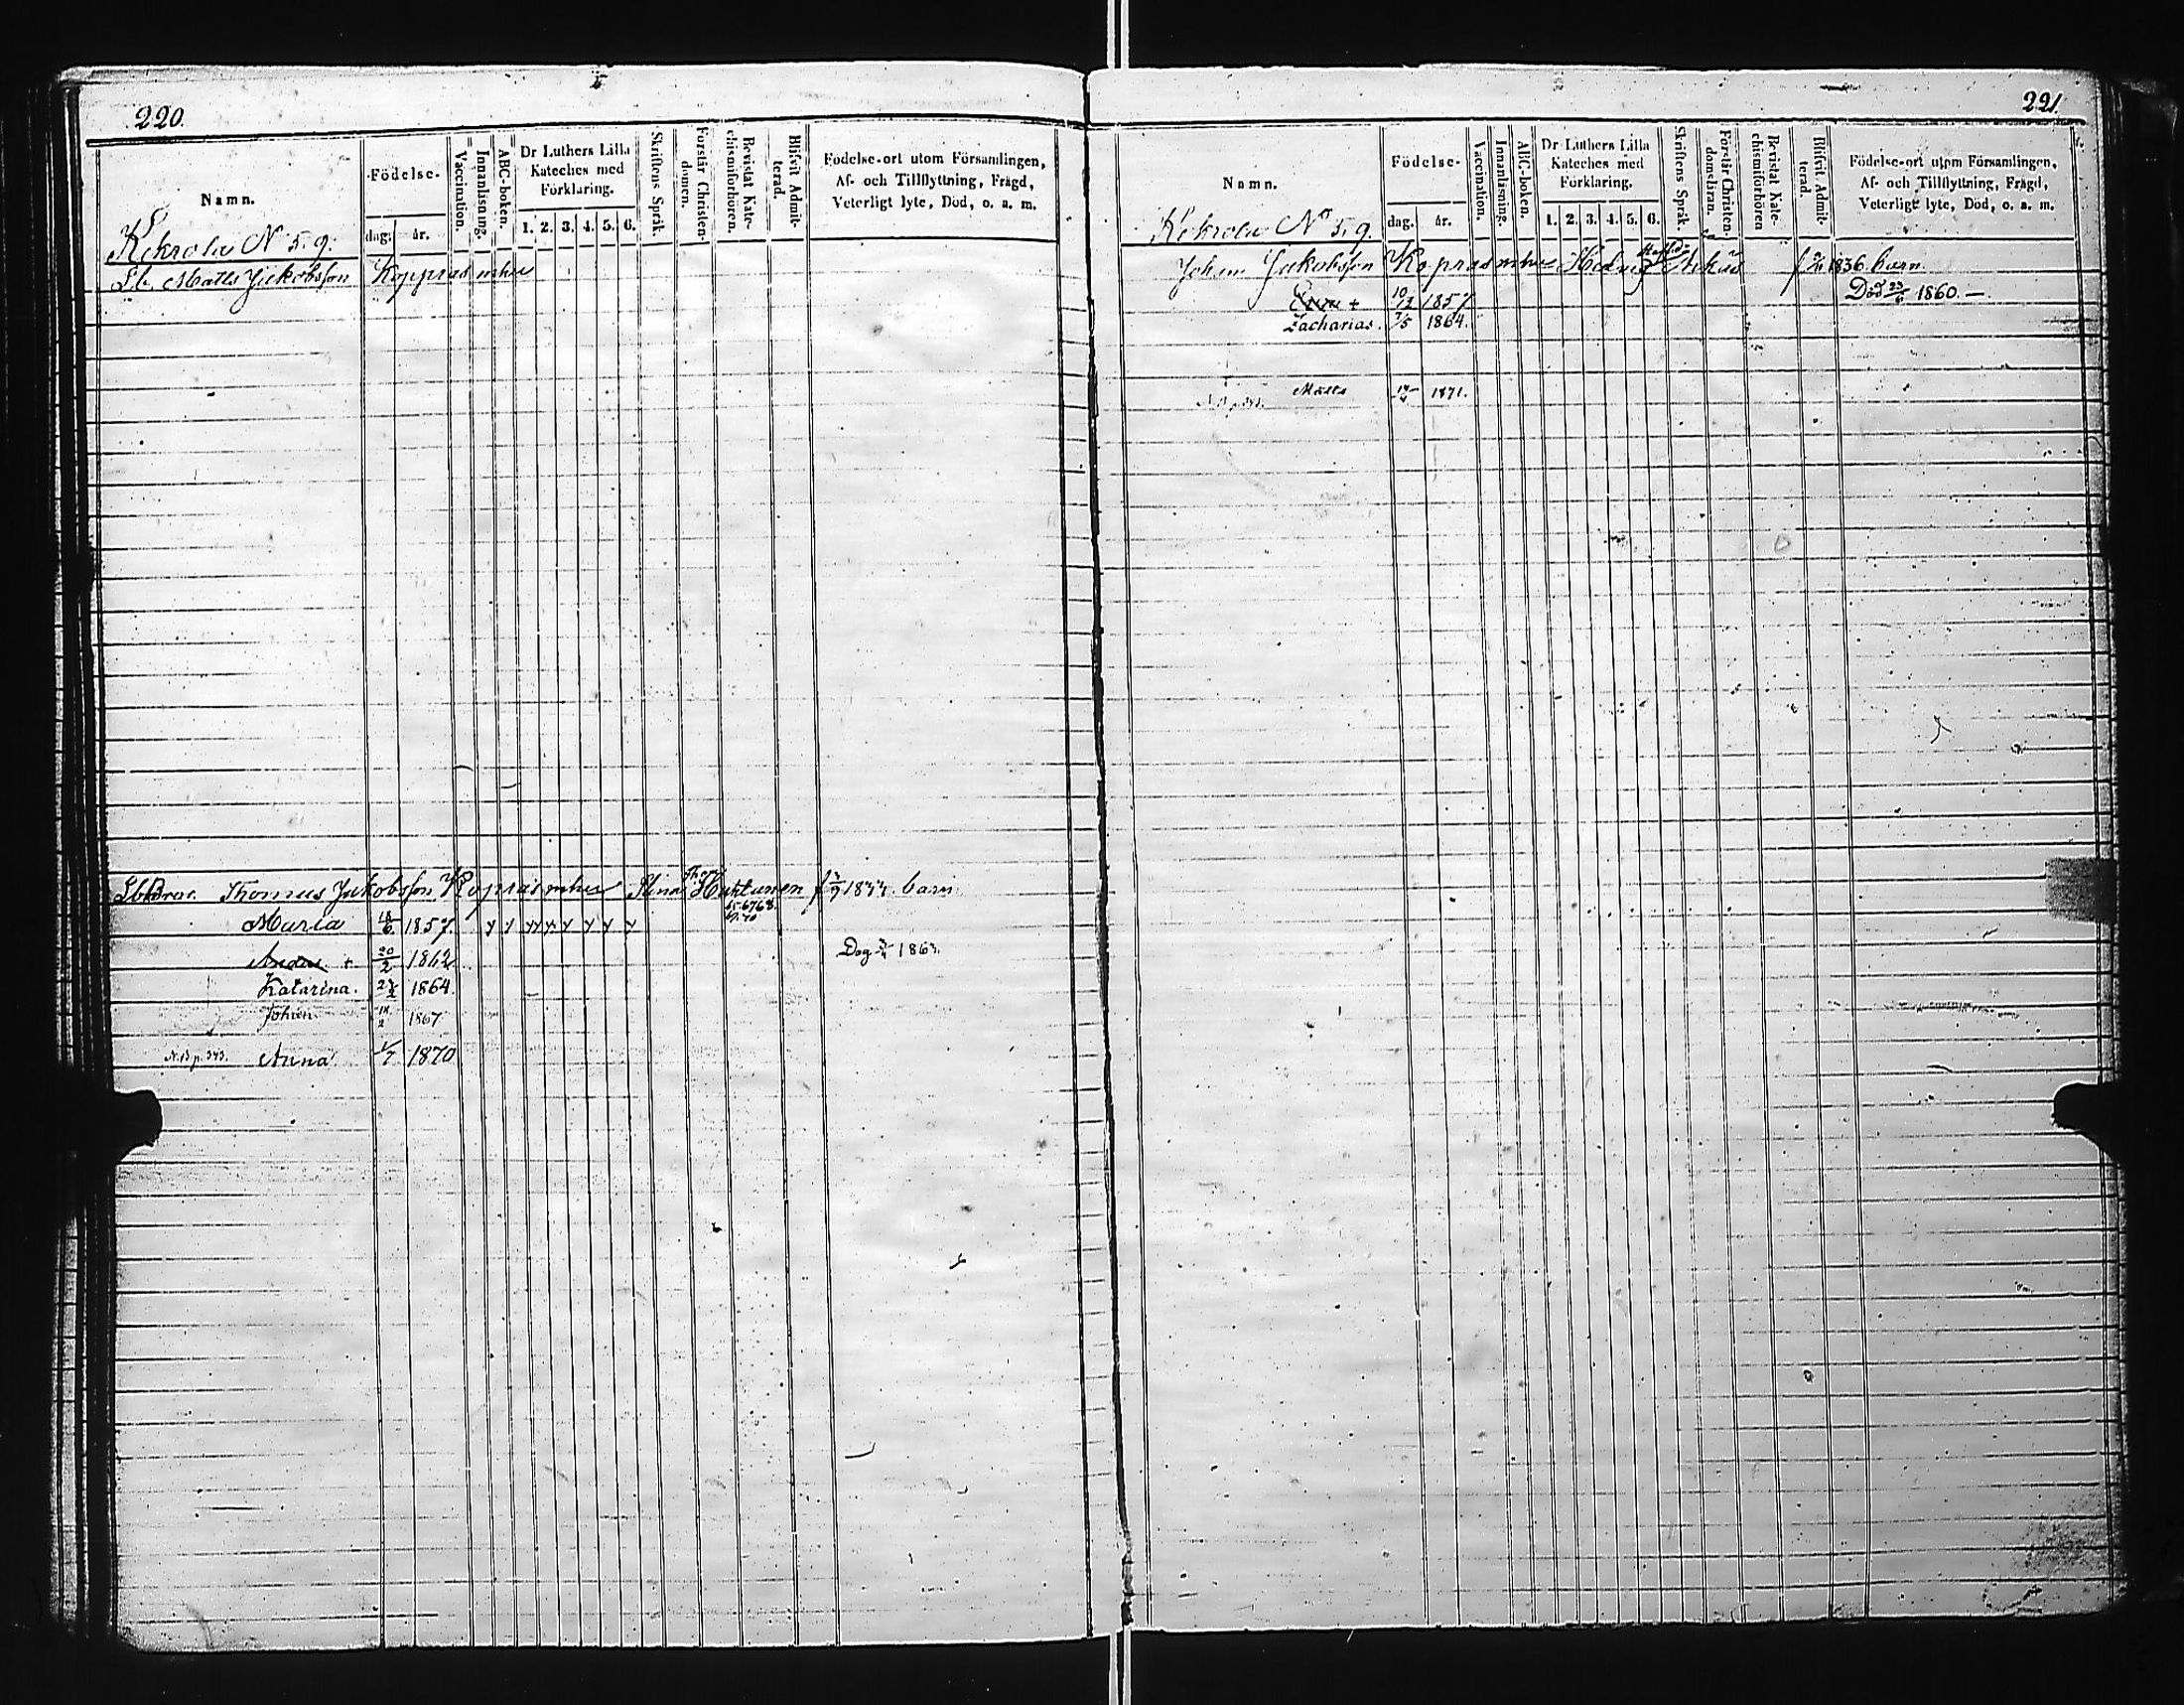 220.
Namn.
Födelse-
dag.
år.
Vaccination.
Innanläsning.
ABC-boken.
Dr Luthers Lilla
Kateches med
Förklaring.
1. 2. 3. 4. 5. 6.
Skriftens Språk.
Förstår Christen-
domen.
Bevistat Kate-
chismiförhören.
Blifvit Admit-
terad.
Födelse-ort utom Församlingen,
Af- och Tillflyttning, Frägd,
Veterligt lyte, Död, o. a. m.
Kekrola N 5. 9.
Lb. Matts Jakobsson Koppras
Thomas Jakobsson Kopras Stina Huttunen barn
Maria 18/6 1857.
65.67.68.
69.70
+ 20/2 1862 Dog 1863.
Katarina. 1864.
Johan 1867
N.B p. 343. Anna 1/7 1870
221.
Namn.
Födelse-
dag.
år.
Vaccination.
Innanläsning.
ABC-boken.
Dr Luthers Lilla
Kateches med
Förklaring.
1. 2. 3. 4. 5. 6.
Skriftens Språk.
Förstår Christen-
domsläran.
Bevistat Kate-
chismiförhören
Blifvit Admit-
terad.
Födelse-ort utom Församlingen,
Af- och Tillflyttning, Frägd,
Veterligt lyte, Död, o. a. m.
Kekrola No 5. 9.
Johan Jakobsson Kopras Hedvig 1836. barn.
+ 10/12 1857 Död 23/6 1860. —
Zacharias. 7/5 1864.
Matts 1871.